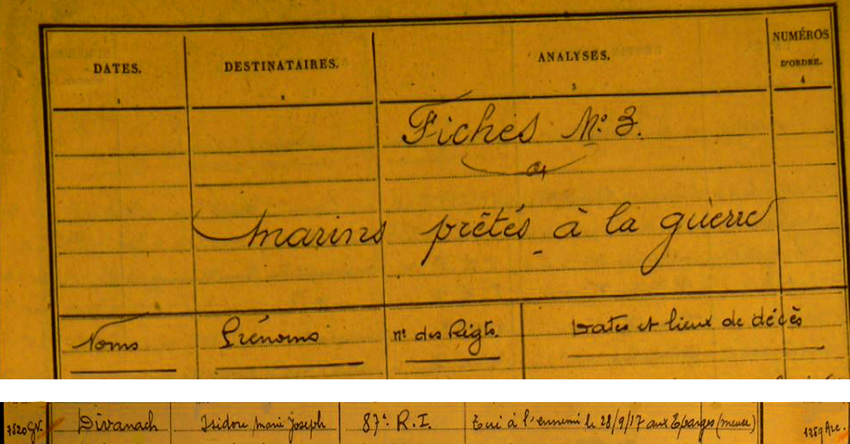 DATES. DESTINATAIRES. ANALYSES. NUMÉROS D'ORDRE.
1 2 3 4
Fiches No. 3.
marins prêtés à la guerre
Noms Prénoms no des Régts. Dates et lieux de décès
Divanach Isidore Marie Joseph 87e R.I. Tué à l'ennemi le 28/9/17 aux Eparges (meuse)